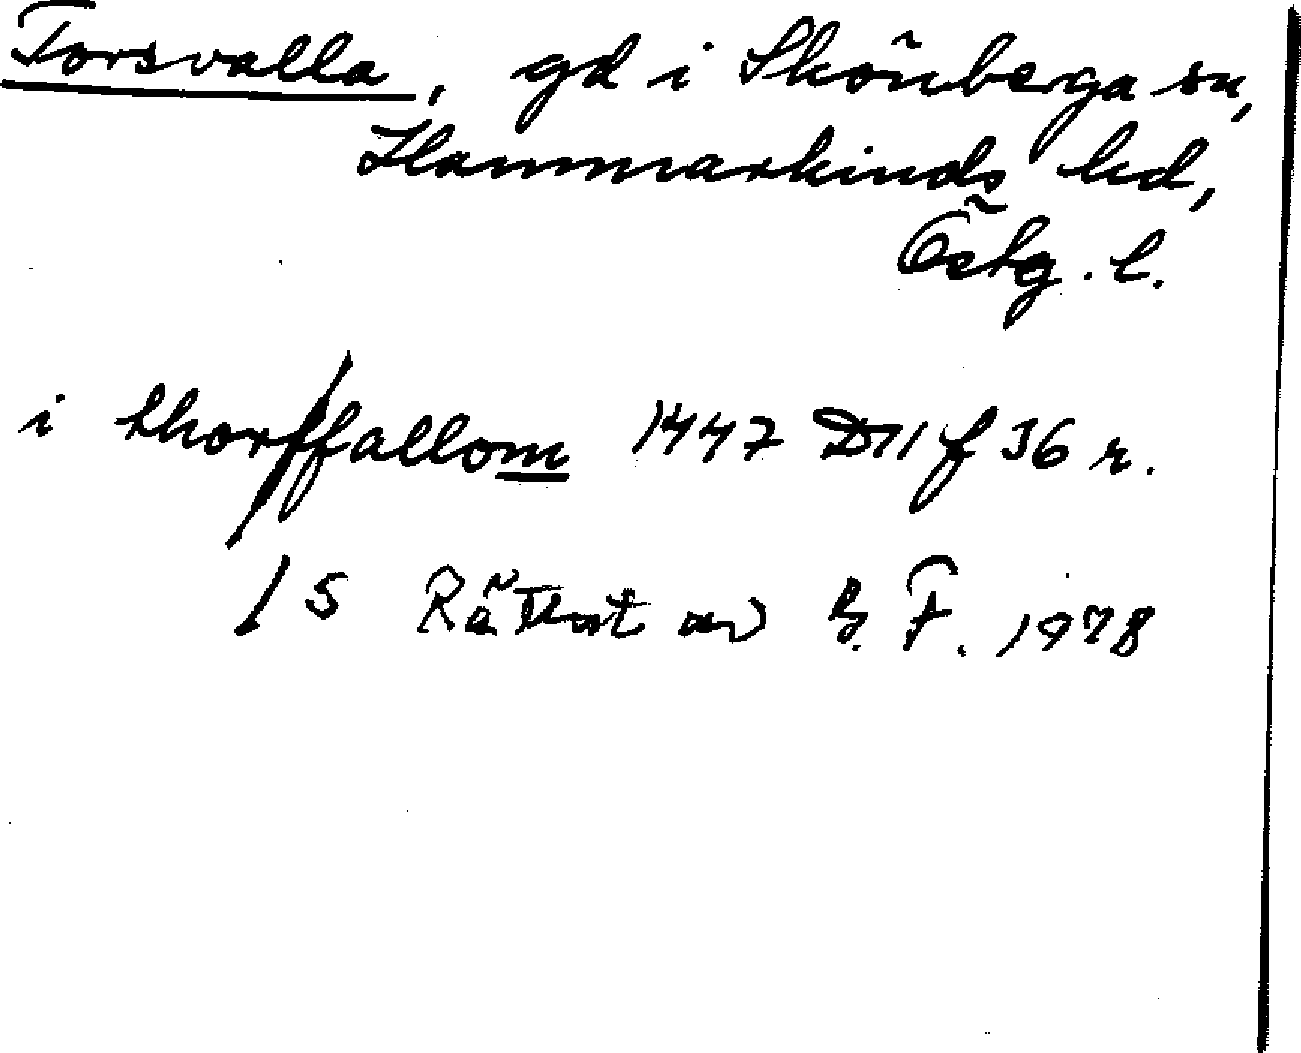 Torsvalla, gd i Skönberga sn,
Hammarkinds hd,
Östg. l.
i thorffallom 1447 D11 f 36 r.
/s Rättat av G. F. 1978